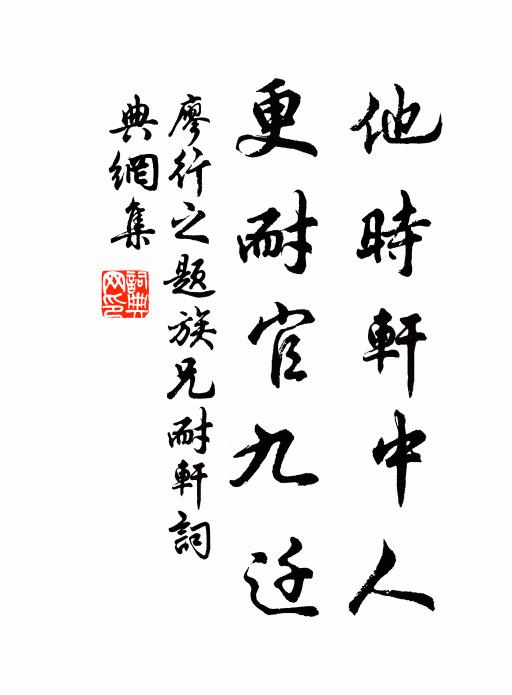 他時軒中人
更耐官九迁
廖行之題族兄耐軒詞
典網集
詞典網印